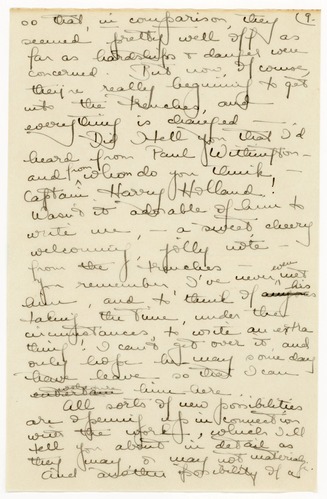 so that, in comparison, they (9.
seemed pretty well off as
far as hardships & danger were
concerned. But now, of course
they're really beginning to get
into the trenches, and
everything is changed —.
Did I tell you that I'd
heard from Paul Withington —
and from whom do you think —
Captain Harry Holland!
Wasn't it adorable of him to
write me, — a sweet, cheery
welcoming, jolly note —
from the trenches —
You remember I've never even met
him, and to think of his
taking the time, under the
circumstances, to write an extra
thing! I can't get over it and
only hope he may some day
have leave — so that I can
him here.
All sorts of new possibilities
are opening up in connection
with the work, which I'll
tell you about in detail as
they may or may not materialize.
And another possibility of a